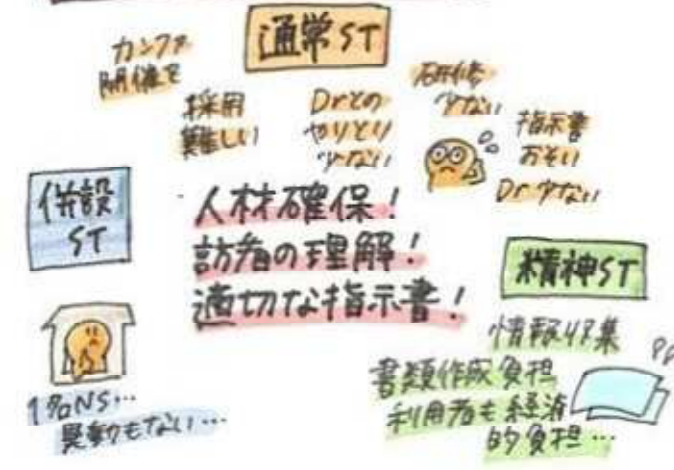 通常ST
カンファ
開催を
採用
難しい
Drとの
やりとり
少ない
研修
少ない
指示書
おそい
Dr少ない
併設
ST
人材確保！
訪看の理解！
適切な指示書！
精神ST
情報収集
書類作成負担
利用者も経済
的負担…
NS…
異動もない…